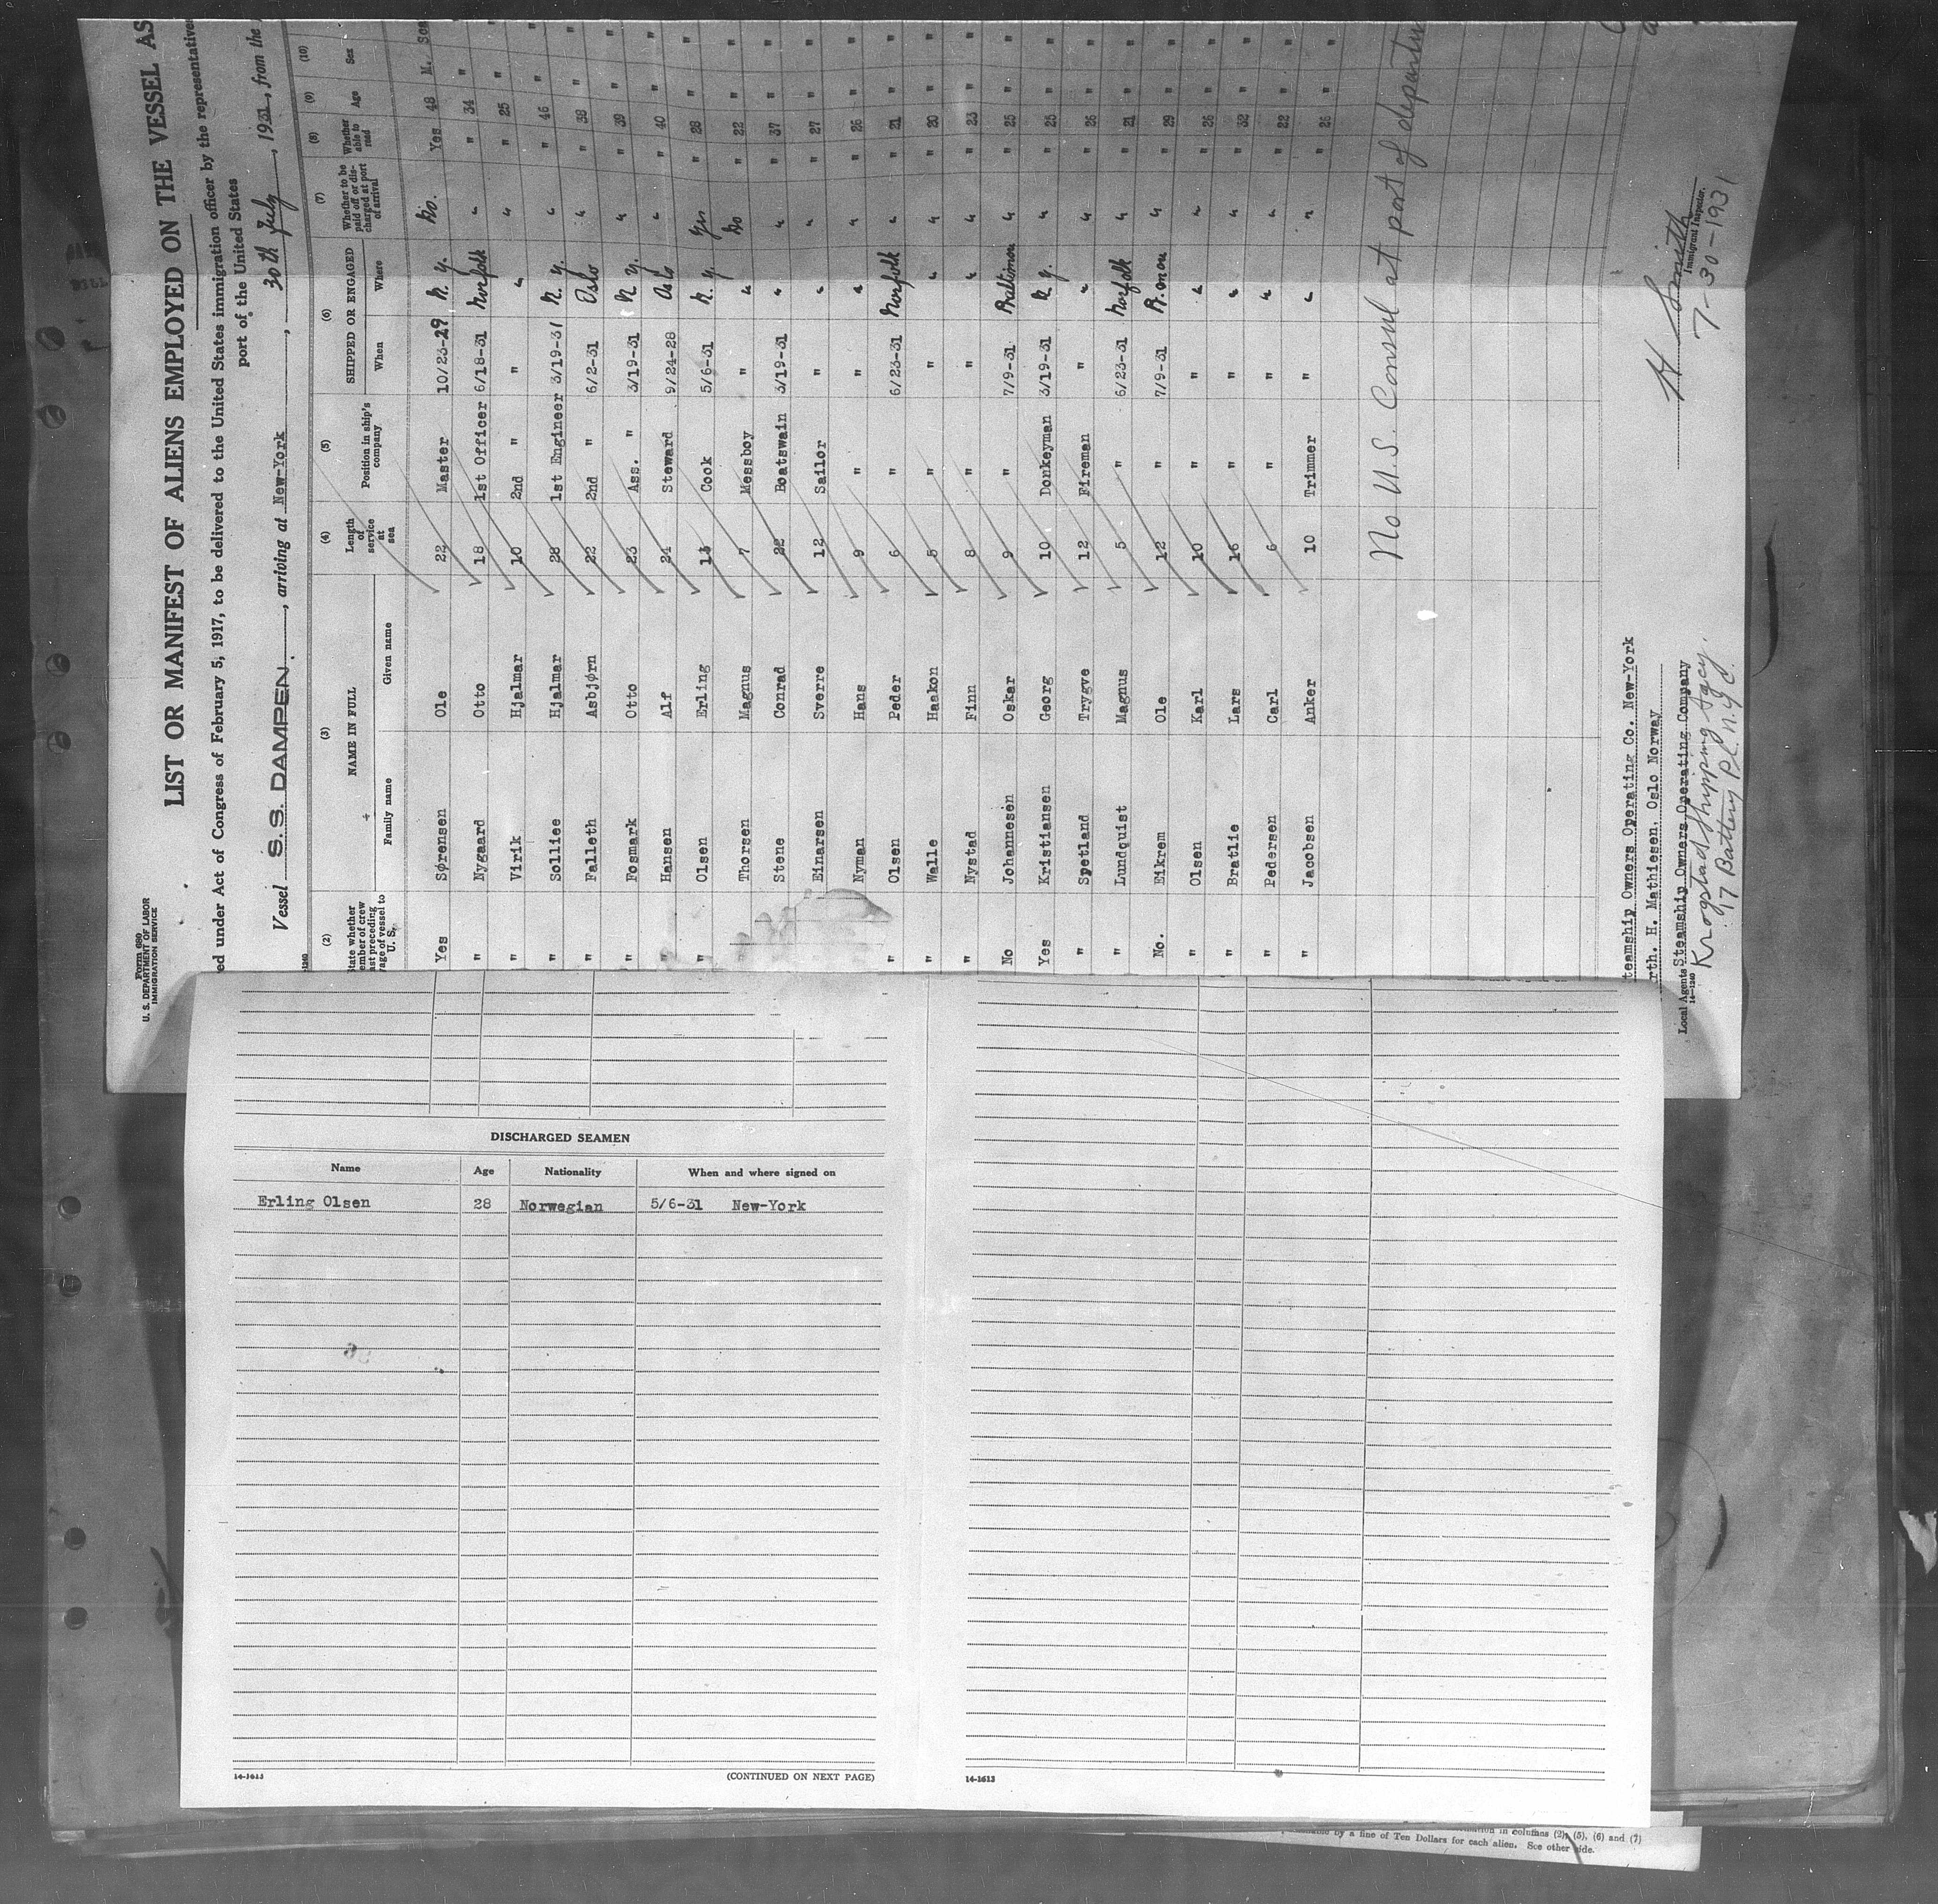 Form 680
U. S. DEPARTMENT OF LABOR
IMMIGRATION SERVICE
LIST OR MANIFEST OF ALIENS EMPLOYED ON THE VESSEL AS
ed under Act of Congress of February 5, 1917, to be delivered to the United States immigration officer by the representative
port of the United States
Vessel S.S. DAMPEN, arriving at New-York, 30th July, 1931, from the
(2) (3) (4) (5) (6) (7) (8) (9) (10)
State whether member of crew last preceding voyage of vessel to U. S. NAME IN FULL Length of service at sea Position in ship's company SHIPPED OR ENGAGED Whether to be paid off or discharged at port of arrival Whether able to read Age Sex
Family name Given name When Where
Yes Sørensen Ole 22 Master 10/23-29 N. Y. No. Yes 48 M.
" Nygaard Otto 18 1st Officer 6/18-31 Norfolk " " 34 "
" Virik Hjalmar 10 2nd " " " " " 25 "
" Solliee Hjalmar 28 1st Engineer 3/19-31 N. Y. " " 46 "
" Falleth Asbjørn 22 2nd " 6/2-31 Oslo " " 38 "
" Fosmark Otto 23 Ass. " 3/19-31 N. Y. " " 39 "
" Hansen Alf 24 Steward 9/24-28 Oslo " " 40 "
" Olsen Erling 13 Cook 5/6-31 N. Y. Yes " 28 "
" Thorsen Magnus 7 Messboy " " No " 22 "
Stene Conrad 22 Boatswain 3/19-31 " " " 37 "
Einarsen Sverre 12 Sailor " " " " 27 "
Nyman Hans 9 " " " " " 26 "
" Olsen Peder 6 " 6/23-31 Norfolk " " 21 "
" Walle Haakon 5 " " " " " 20 "
" Nystad Finn 8 " " " " " 23 "
No Johannesen Oskar 9 " 7/9-31 Baltimore " " 25 "
Yes Kristiansen Georg 10 Donkeyman 3/19-31 N. Y. " " 25 "
" Spetland Trygve 12 Fireman " " " " 26 "
" Lundquist Magnus 5 " 6/23-31 Norfolk " " 21 "
No. Eikrem Ole 12 " 7/9-31 " " 29 "
" Olsen Karl 10 " " " " " 26 "
" Bratlie Lars 16 " " " " " 32 "
" Pedersen Carl 6 " " " " " 22 "
" Jacobsen Anker 10 Trimmer " " " " 26 "
No U.S. Consul at port of departu
teamship Owners Operating Co. New-York
rth. H. Mathiesen, Oslo Norway
Local Agents Steamship Owners Operating Company
14-1240
Krogstad Shipping Agcy.
17 Battery Pl. N.Y.C.
H Smith
Immigrant Inspector.
7-30-1931
DISCHARGED SEAMEN
Name Age Nationality When and where signed on
Erling Olsen 28 Norwegian 5/6-31 New-York
14-1613 (CONTINUED ON NEXT PAGE)
14-1613
in columns (2), (5), (6) and (7)
by a fine of Ten Dollars for each alien. See other side.